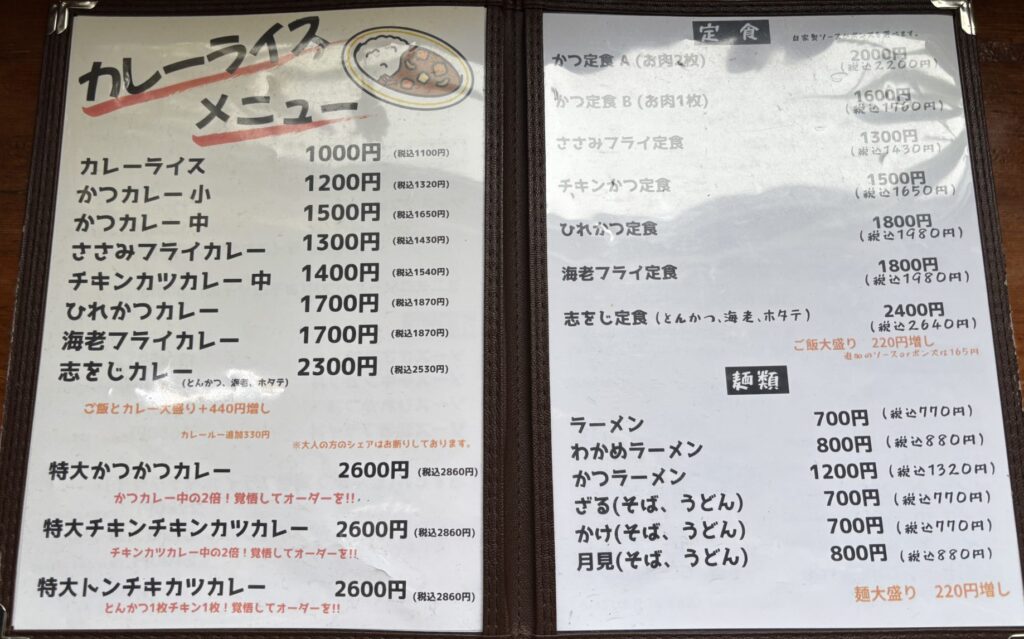 カレーライス
メニュー
カレーライス 1000円 (税込1100円)
かつカレー 小 1200円 (税込1320円)
かつカレー 中 1500円 (税込1650円)
ささみフライカレー 1300円 (税込1430円)
チキンカツカレー 中 1400円 (税込1540円)
ひれかつカレー 1700円 (税込1870円)
海老フライカレー 1700円 (税込1870円)
志をじカレー 2300円 (税込2530円)
(とんかつ、海老、ホタテ)
ご飯とカレー大盛り+440円増し
カレールー追加330円
※大人の方のシェアはお断りしております。
特大かつかつカレー 2600円 (税込2860円)
かつカレー中の2倍!覚悟してオーダーを!!
特大チキンチキンカツカレー 2600円 (税込2860円)
チキンカツカレー中の2倍!覚悟してオーダーを!!
特大トンチキカツカレー 2600円 (税込2860円)
とんかつ1枚チキン1枚!覚悟してオーダーを!!
定食
自家製ソースorポンズを選べます。
かつ定食 A (お肉2枚) 2000円
(税込2200円)
かつ定食 B (お肉1枚) 1600円
(税込1760円)
ささみフライ定食 1300円
(税込1430円)
チキンかつ定食 1500円
(税込1650円)
ひれかつ定食 1800円
(税込1980円)
海老フライ定食 1800円
(税込1980円)
志をじ定食 (とんかつ、海老、ホタテ) 2400円
(税込2640円)
ご飯大盛り 220円増し
追加のソースorポンズは165円
麺類
ラーメン 700円 (税込770円)
わかめラーメン 800円 (税込880円)
かつラーメン 1200円 (税込1320円)
ざる(そば、うどん) 700円 (税込770円)
かけ(そば、うどん) 700円 (税込770円)
月見(そば、うどん) 800円 (税込880円)
麺大盛り 220円増し